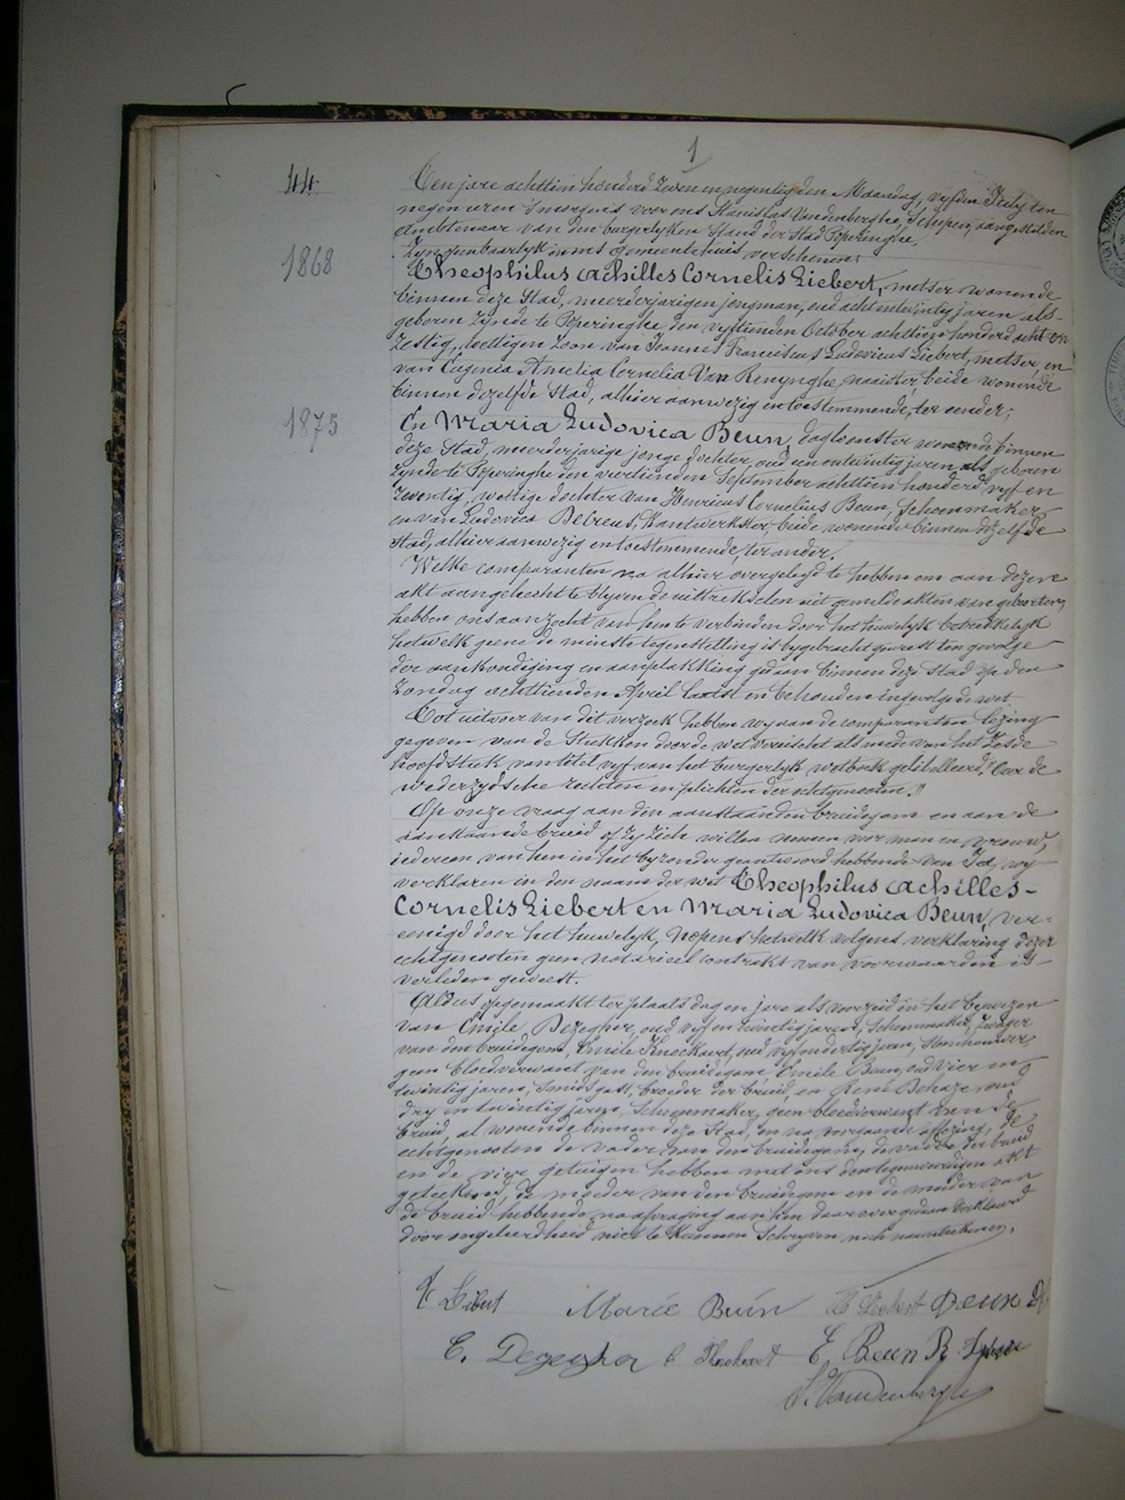 1
44
Ten jare achttien honderd zeven en negentig den Maandag, vyfden July ten
negen uren 's morgens voor ons Stanislas Vandenberghe, Schepen, aangestelden
Ambtenaar van den burgerlyken Stand der Stad Poperinghe,
Zyn openbaarlyk in ons gemeentehuis verschenen:
1868
Theophilus Achilles Cornelis Liebert, metser wonende
binnen deze Stad, meerderjarigen jongman, oud acht en twintig jaren als
geboren zynde te Poperinghe den vyftienden October achttien honderd acht en
zestig, wettigen zoon van Joannes Franciscus Ludovicus Liebert, metser, en
van Eugenia Amelia Cornelia Van Renynghe, naaister, beide wonende
binnen dezelfde Stad, alhier aanwezig en toestemmende, ter eender;
1875
En Maria Ludovica Beun, dagloonster wonende binnen
deze Stad, meerderjarige jonge dochter, oud een en twintig jaren als geboren
zynde te Poperinghe den veertienden September achttien honderd vyf en
zeventig, wettige dochter van Henricus Cornelius Beun, Schoenmaker,
en van Ludovica Debreus, Kantwerkster, beide wonende binnen dezelfde
Stad, alhier aanwezig en toestemmende, ter ander.
Welke comparanten na alhier overgelegd te hebben om aan dezen
akt aangehecht te blyven de uittrekselen uit gemelde akten van geboorten,
hebben ons aanzocht van hun te verbinden door het huwelyk betrekkelyk
hetwelk geene de minste tegenstelling is bygebracht geweest ten gevolge
der aankondiging en aanplakking gedaan binnen deze Stad op den
Zondag achttienden April laatst en behouden ingevolge de wet
Tot uitvoer van dit verzoek hebben wy aan de comparanten lezing
gegeven van de Stukken door de wet vereischt alsmede van het Zesde
hoofdstuk van titel vyf van het burgerlyk wetboek getituleerd: "Over de
wederzydsche rechten en plichten der echtgenooten."
Op onze vraag aan den aanstaanden bruidegom en aan de
aanstaande bruid of zy zich willen nemen voor man en vrouw,
iedereen van hen in het byzonder geantwoord hebbende van Ja, wy
verklaren in den naam der wet Theophilus Achilles-
Cornelis Liebert en Maria Ludovica Beun, ver=
eenigd door het huwelyk, nopens hetwelk volgens verklaring dezer
echtgenooten geen notarieel contrakt van voorwaarden is
verleden geweest.
Aldus opgemaakt ter plaats dag en jare als voorzeid in het bywezen
van Emile Dezegher, oud vyf en twintig jaren, Schoenmaker, zwager
van den bruidegom, Emile Knockaert, oud vyf en dertig jaren, Steenhouwer
geen bloedverwant van den bruidegom Emile Beun, oud vier en
twintig jaren, Smidsgast, broeder der bruid, en René Behaze oud
dry en twintig jaren, Schoenmaker, geen bloedverwant van de
bruid, al wonende binnen deze Stad, en na voorgaande aflezing, de
echtgenooten de vader van den bruidegom, de vader der bruid
en de vier getuigen hebben met ons den tegenwoordigen akt
geteekend, de moeder van den bruidegom en de moeder van
de bruid hebbende na afvraging aan hen daarover gedaan verklaard
door ongeleerdheid niet te kunnen Schryven noch naamteekenen.
T Liebert Marie Buin Liebert Beun
E. Dezegher E Knockaert E Beun R
S. Vandenberghe